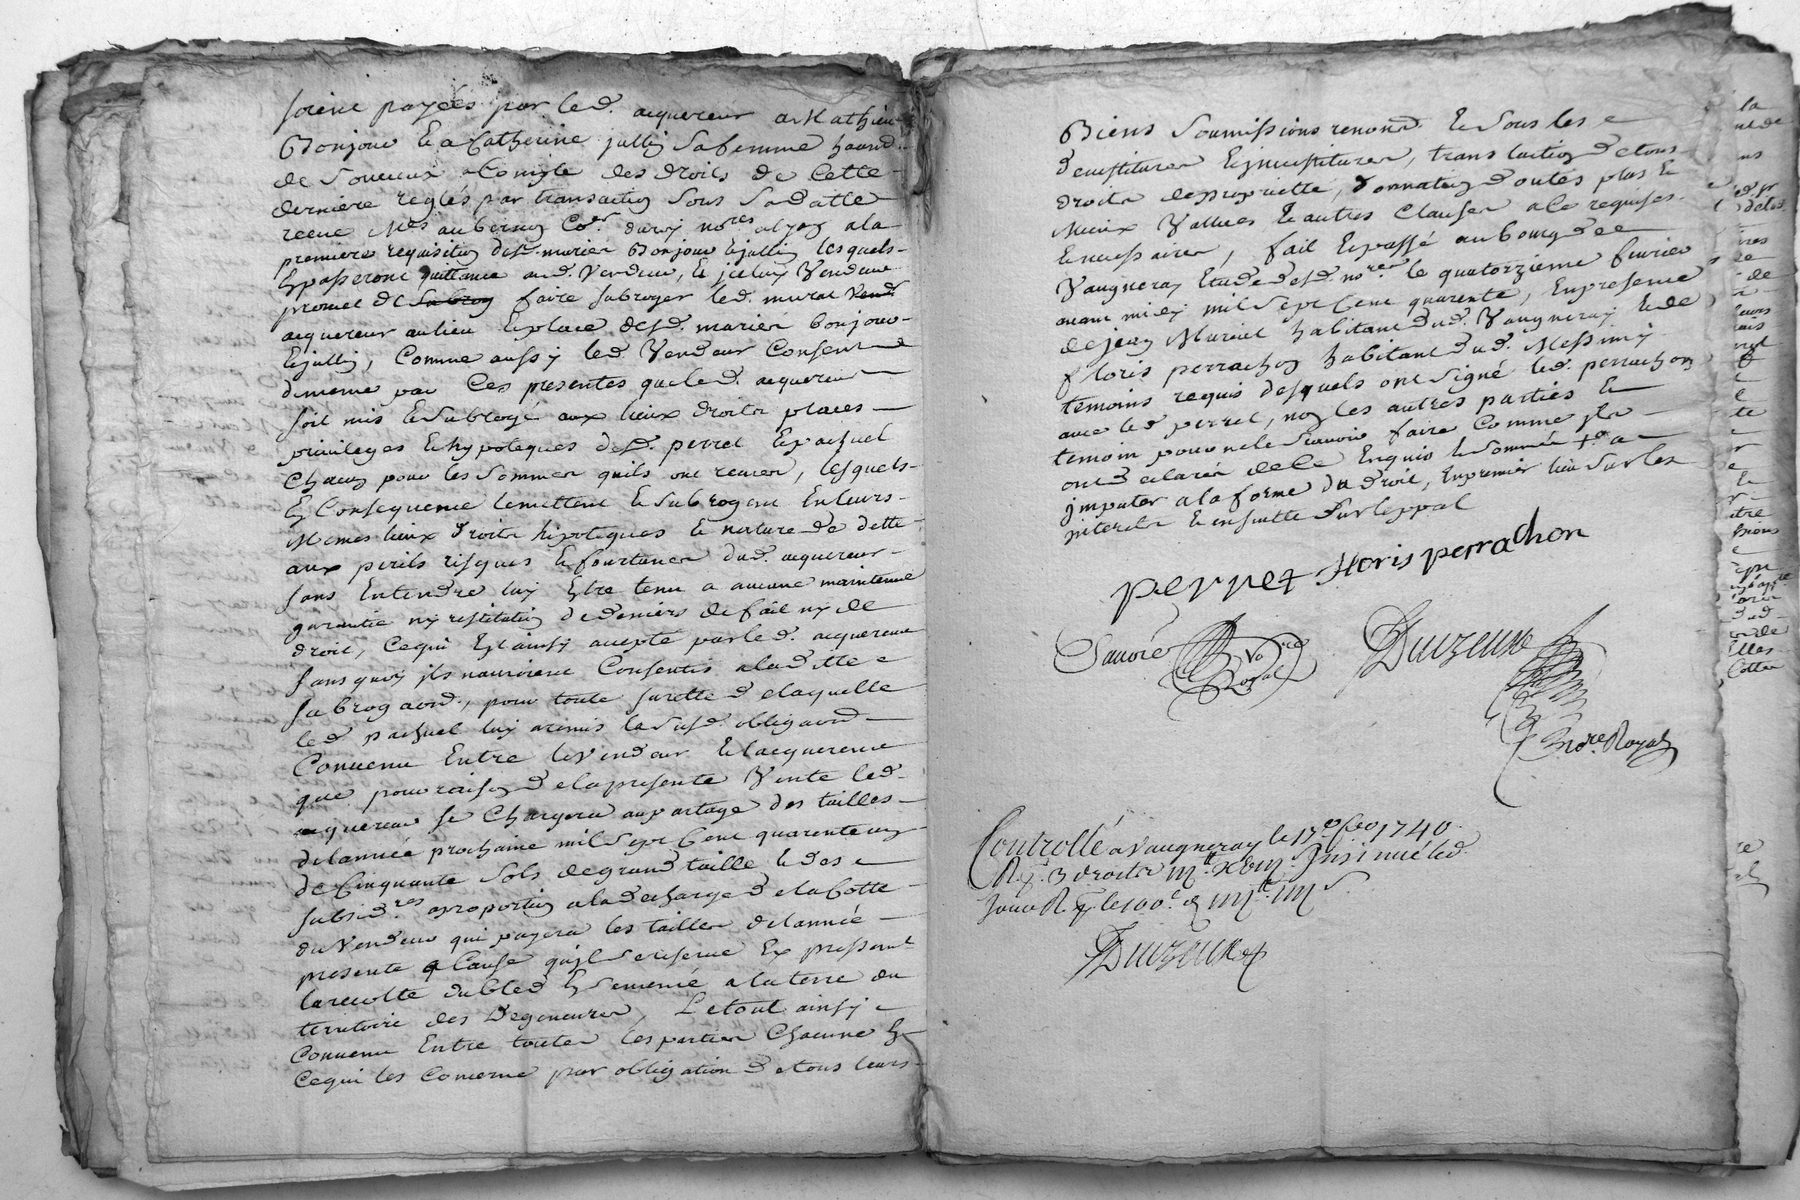 soient payées par led. acquereur a Mathieu
Bonjour & a Catherine jullin sa femme haband.
de Souveux a Compte des droits de Cette
derniere reglés par transaction sous sa datte
receue Mes aubernon Co.er duvy no.res alyon a la
premiere requisition desd. mariés Bonjour & jullin lesquels
En passeront quittance aud. Vendeur, & jceluy Vendeur
promet de Subrog faire subroger led. murat Vend
acquereur au lieu & place desd. mariés bonjour
& jullin, Comme aussy led. Vendeur Consent
dememe par Ces presentes que led. acquereur
soit mis & Subrogé aux lieux droits places
privileges & hypoteques desd. perret & pachuel
Chacun pour les Sommes quils ont receues, lesquels
En Consequence le mettent & Subrogent En leurs
Memes lieux droits hipoteques & nature de dette
aux perils risques & fourtunes dud. acquereur
sans Entendre luy Estre tenu a aucune maintenue
garantie ny restitution de deniers de fait ny de
droit, Cequi Est ainsy accepté par led. acquereur
sans quoy jls nauroient Consentis aladitte
subrogaond., pour toute suretté de laquelle
led. pachuel luy a remis la susd. obligaond
Convenu Entre le Vendeur & lacquereur
que pour raison de la presente Vente led.
acquereur se Chargera au partage des tailles
de lannée prochaine mil sept Cent quarente un
de Cinquante Sols de grand taille & des
subsid.res a proportion a la decharge de la Cotte
du Vendeur qui payera les tailles de lannée
presente a Cause qu'jl se reserve Expressem.t
la recolte du bled Ensemencé a la terre du
territoire des Degeneures, Le tout ainsy
Convenu Entre toutes les parties Chacune En
Cequi les Concerne par obligation de tous leurs
Biens Soumissions renond. & sous les
devestitures & jnvestitures, translation de tous
droits de propriette, donnation doutés plus &
Mieux Vallues & autres Clauses a Ce requises
& necessaires, fait & passé au bourg de
Vaugneray Etude desd. no.res le quatorzieme fevrier
avant midy mil sept Cent quarente, En presence
de jean Muriel habitant dud. Vaugneray & de
floris perrachon habitant dud. Messimy
temoins requis desquels ont signé led. perrachon
avec led. perret, non les autres parties &
temoin pour ne le Scavoir faire Comme jls
ont declaré de Ce Enquis & Sommés + a
jmputer a la forme du droit, En premier lieu sur les
jnterets & en suitte sur le ppal
perret floris perrachon
Savoie no.re Royal Duvzeune
no.re Royal
Controllé a Vaugneray le 17.e feo 1740.
Jnsinué led.
jour R.